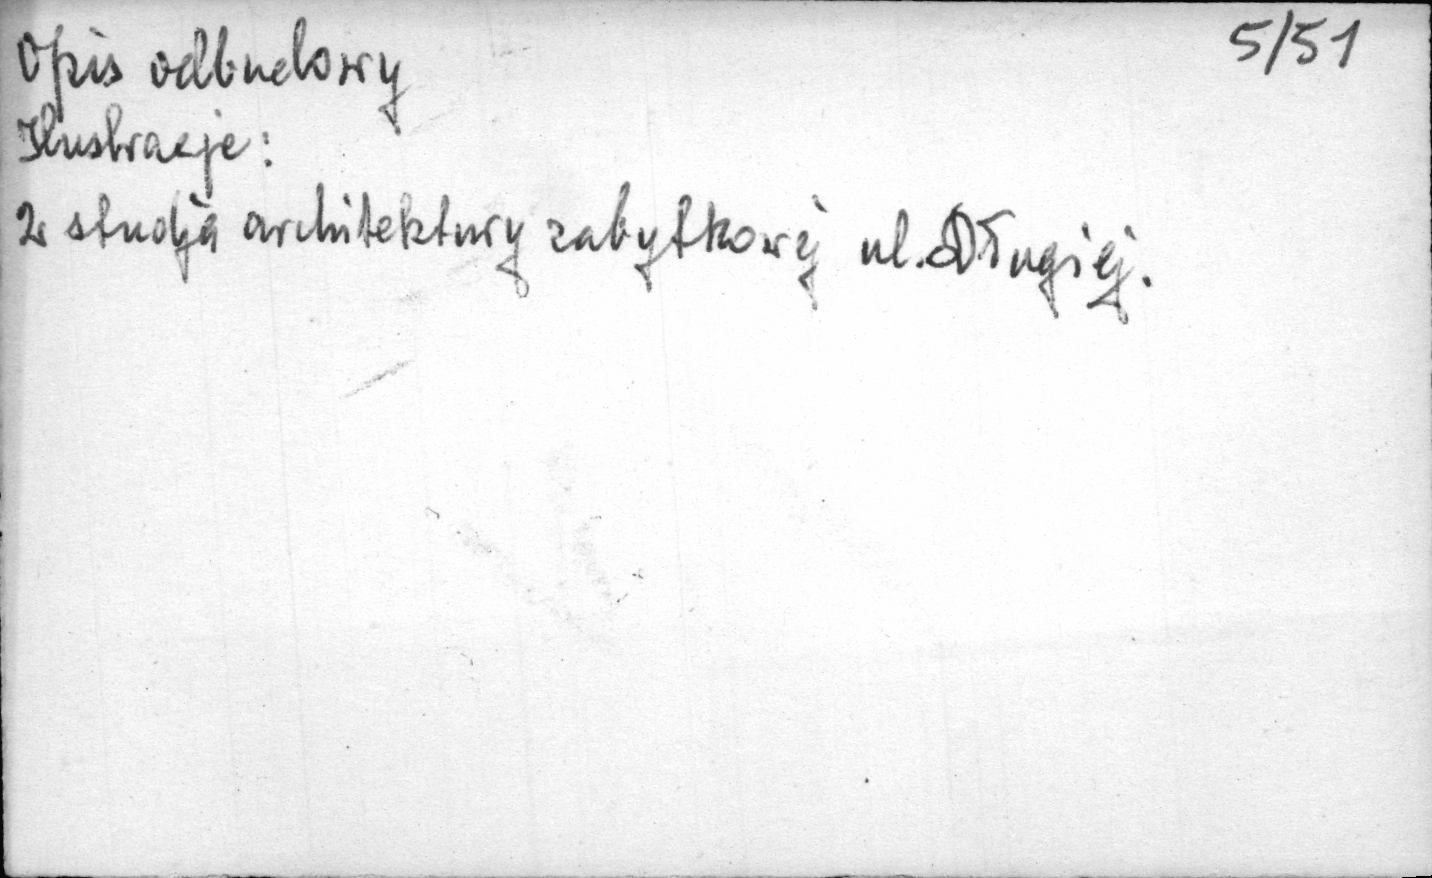 5/51
Opis odbudowy
Ilustracje:
2 studja architektury zabytkowej ul. Długiej.